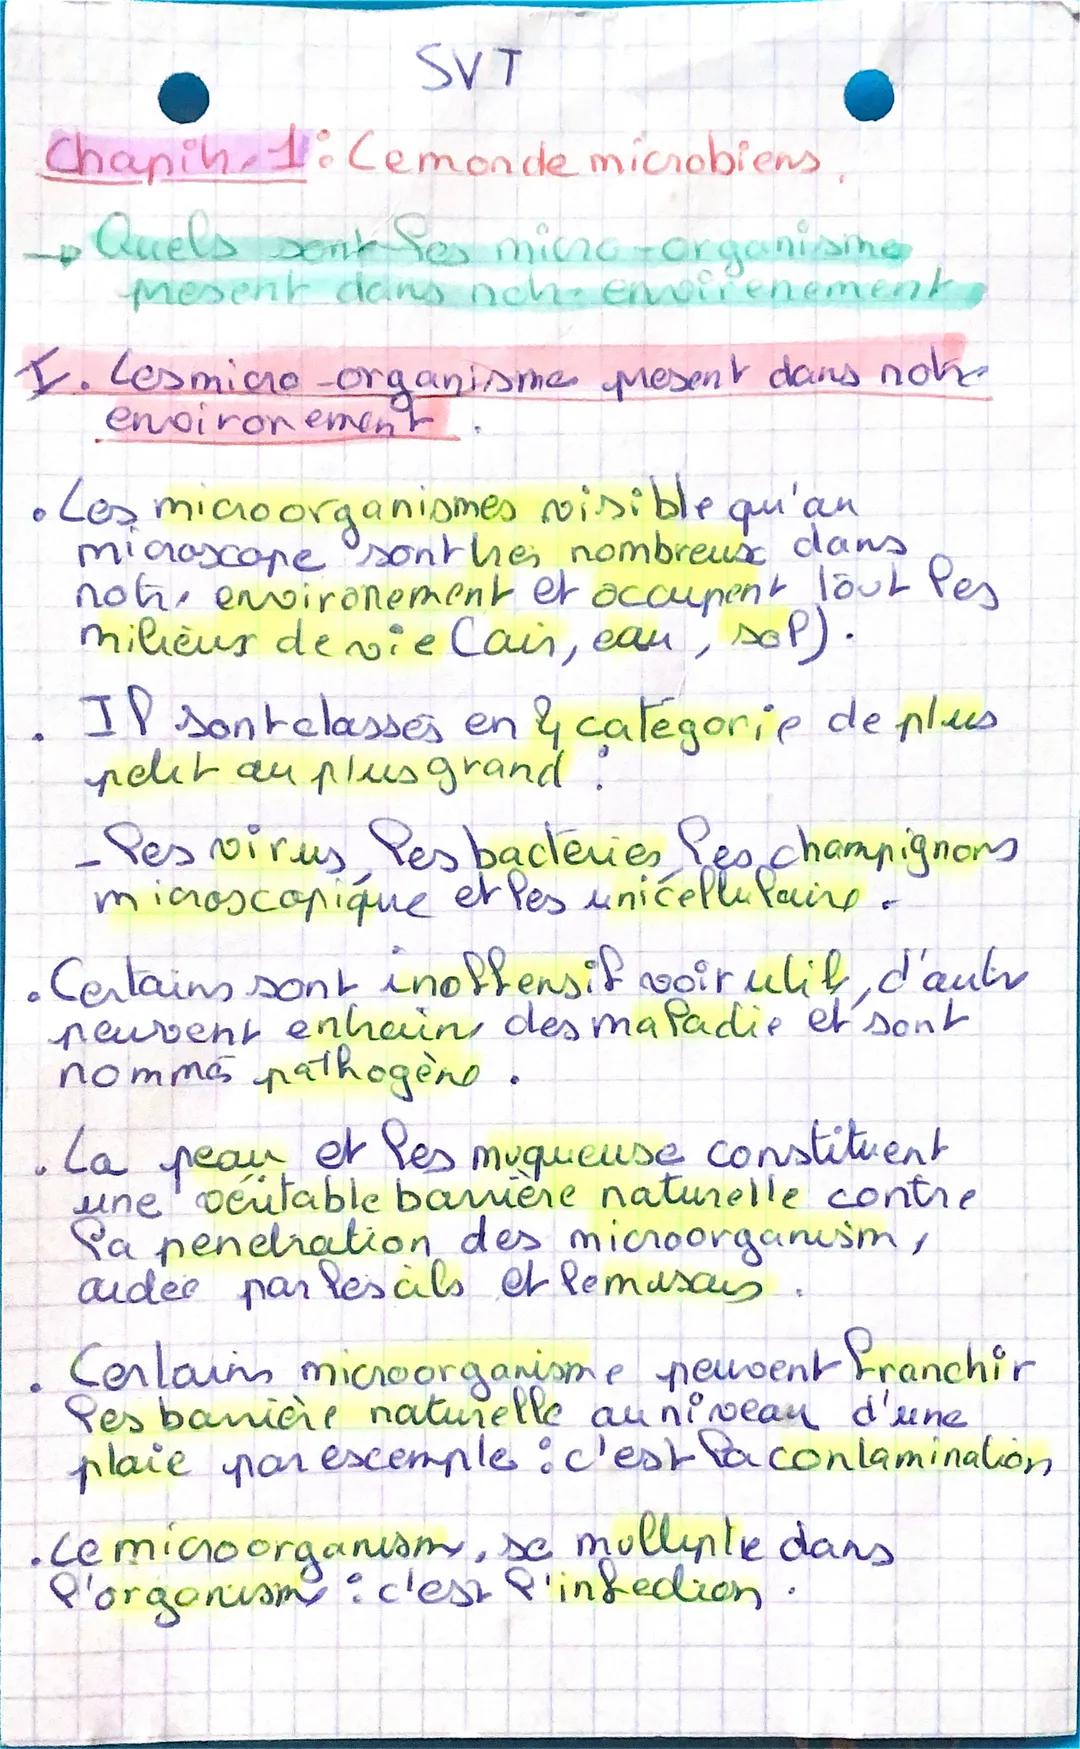 SVT
Chapitre 1 : Le monde microbiens.
→ Quels sont les micro-organisme
present dans notre envoirenement
I. Les micro-organisme present dans notre
environement.
• Les microorganismes visible qu'au
microscope sont très nombreux dans
notre environement et occupent tout les
milieux de vie (air, eau, sol).
• Il sont classés en 4 catégorie de plus
petit au plus grand :
- les virus, les bactéries, les champignons
microscopique et les unicellulaire.
• Certains sont inoffensif voir utile, d'autre
peuvent entrainer des maladie et sont
nommés pathogène.
• La peau et les muqueuse constituent
une véritable barrière naturelle contre
la penetration des microorganisme,
aidée par les cils et le mucus.
• Certains microorganisme peuvent franchir
les barrière naturelle au niveau d'une
plaie par exemple : c'est la contamination
• Le microorganisme, se multiplie dans
l'organisme : c'est l'infection.